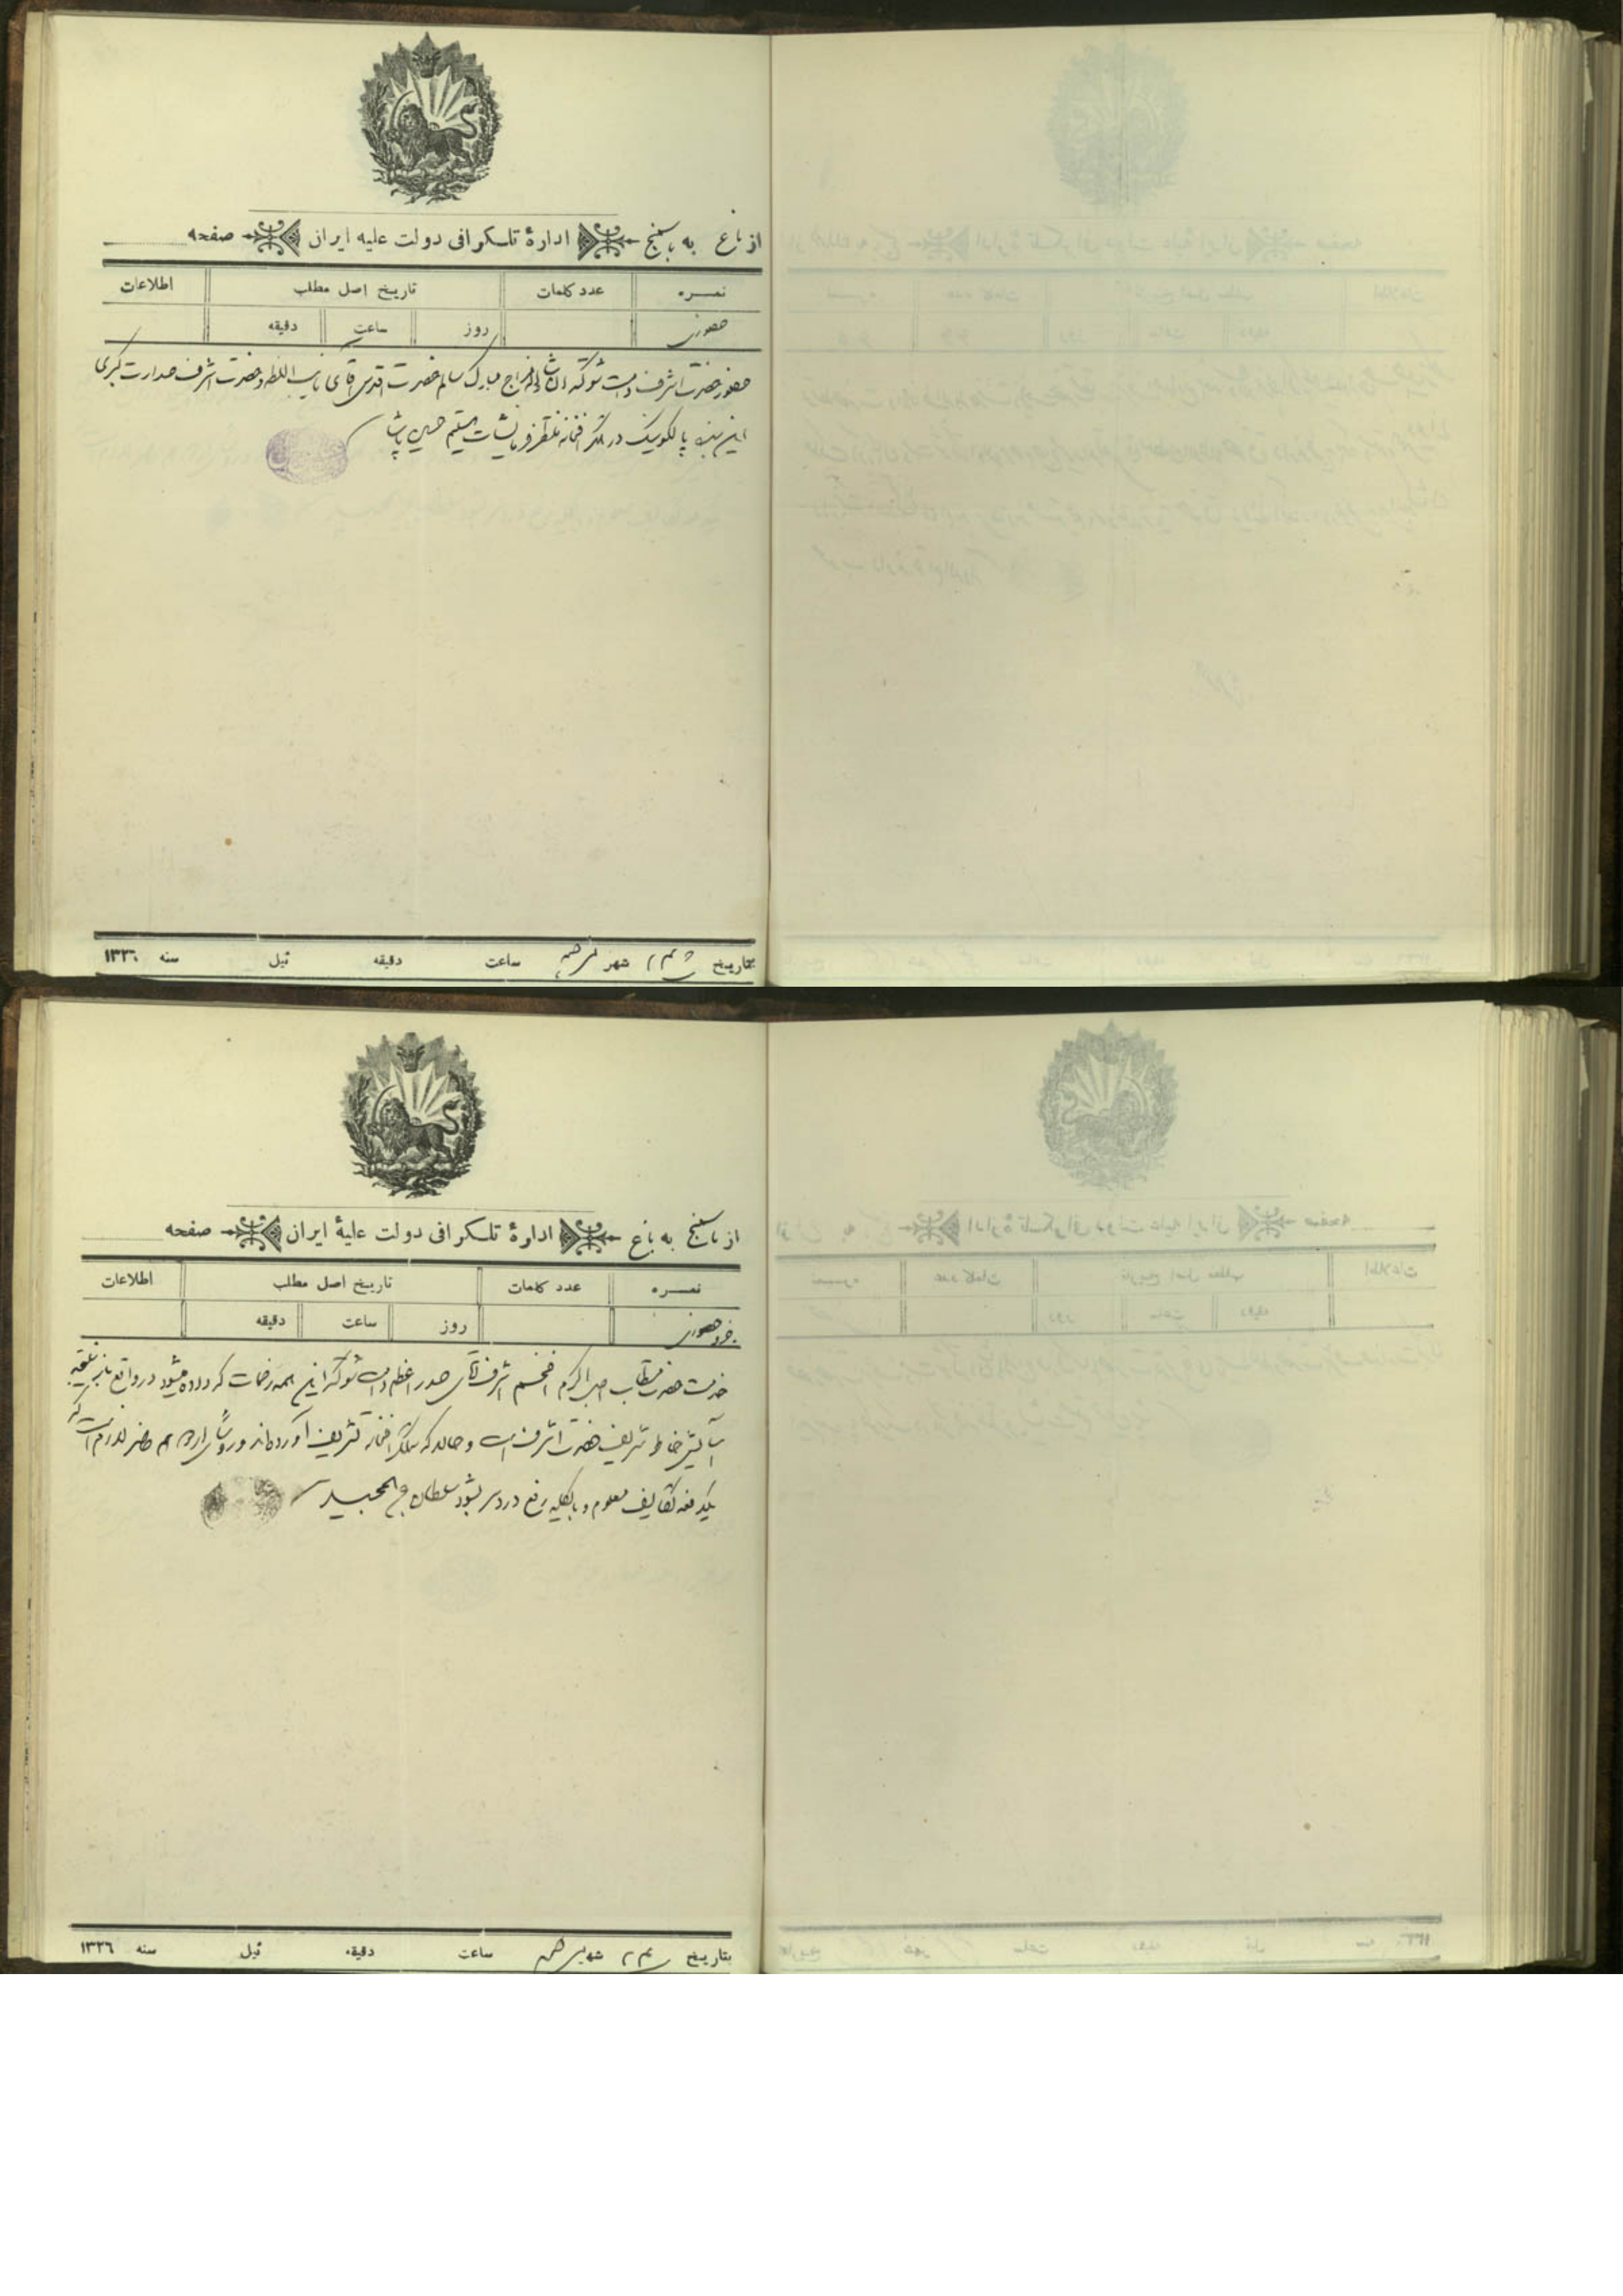 از باغ به باسمنج اداره تلگرافی دولت علیه ایران صفحه
نمره عدد کلمات تاریخ اصل مطلب اطلاعات
حضوری روز ساعت دقیقه
حضور حضرت اشرف دامت شوکته انشاالله مزاج مبارک سالم حضرت اقدس آقای نایب السلطنه و حضرت اشرف صدارت کبری
این بنده پالکونیک در تلگرافخانه منتظر فرمایشات هستیم حسین پاشا
بتاریخ شهر ساعت دقیقه قبل سنه ۱۳۲۶
از باسمنج به باغ اداره تلگرافی دولت علیه ایران صفحه
نمره عدد کلمات تاریخ اصل مطلب اطلاعات
حضوری روز ساعت دقیقه
خدمت حضرت مستطاب اجل اکرم افخم اشرف آقای صدر اعظم دامت شوکته این همه زحمات که داده میشود در واقع
آسایش خاطر شریف حضرت اشرف است و حالا که تلگرافخانه تشریف آورده‌اند و رؤسای اردو هم حاضر لازم است که
یکدفعه تکالیف معلوم و بالکلیه رفع دردسر بشود سلطان عبدالمجید
بتاریخ شهر ساعت دقیقه قبل سنه ۱۳۲۶